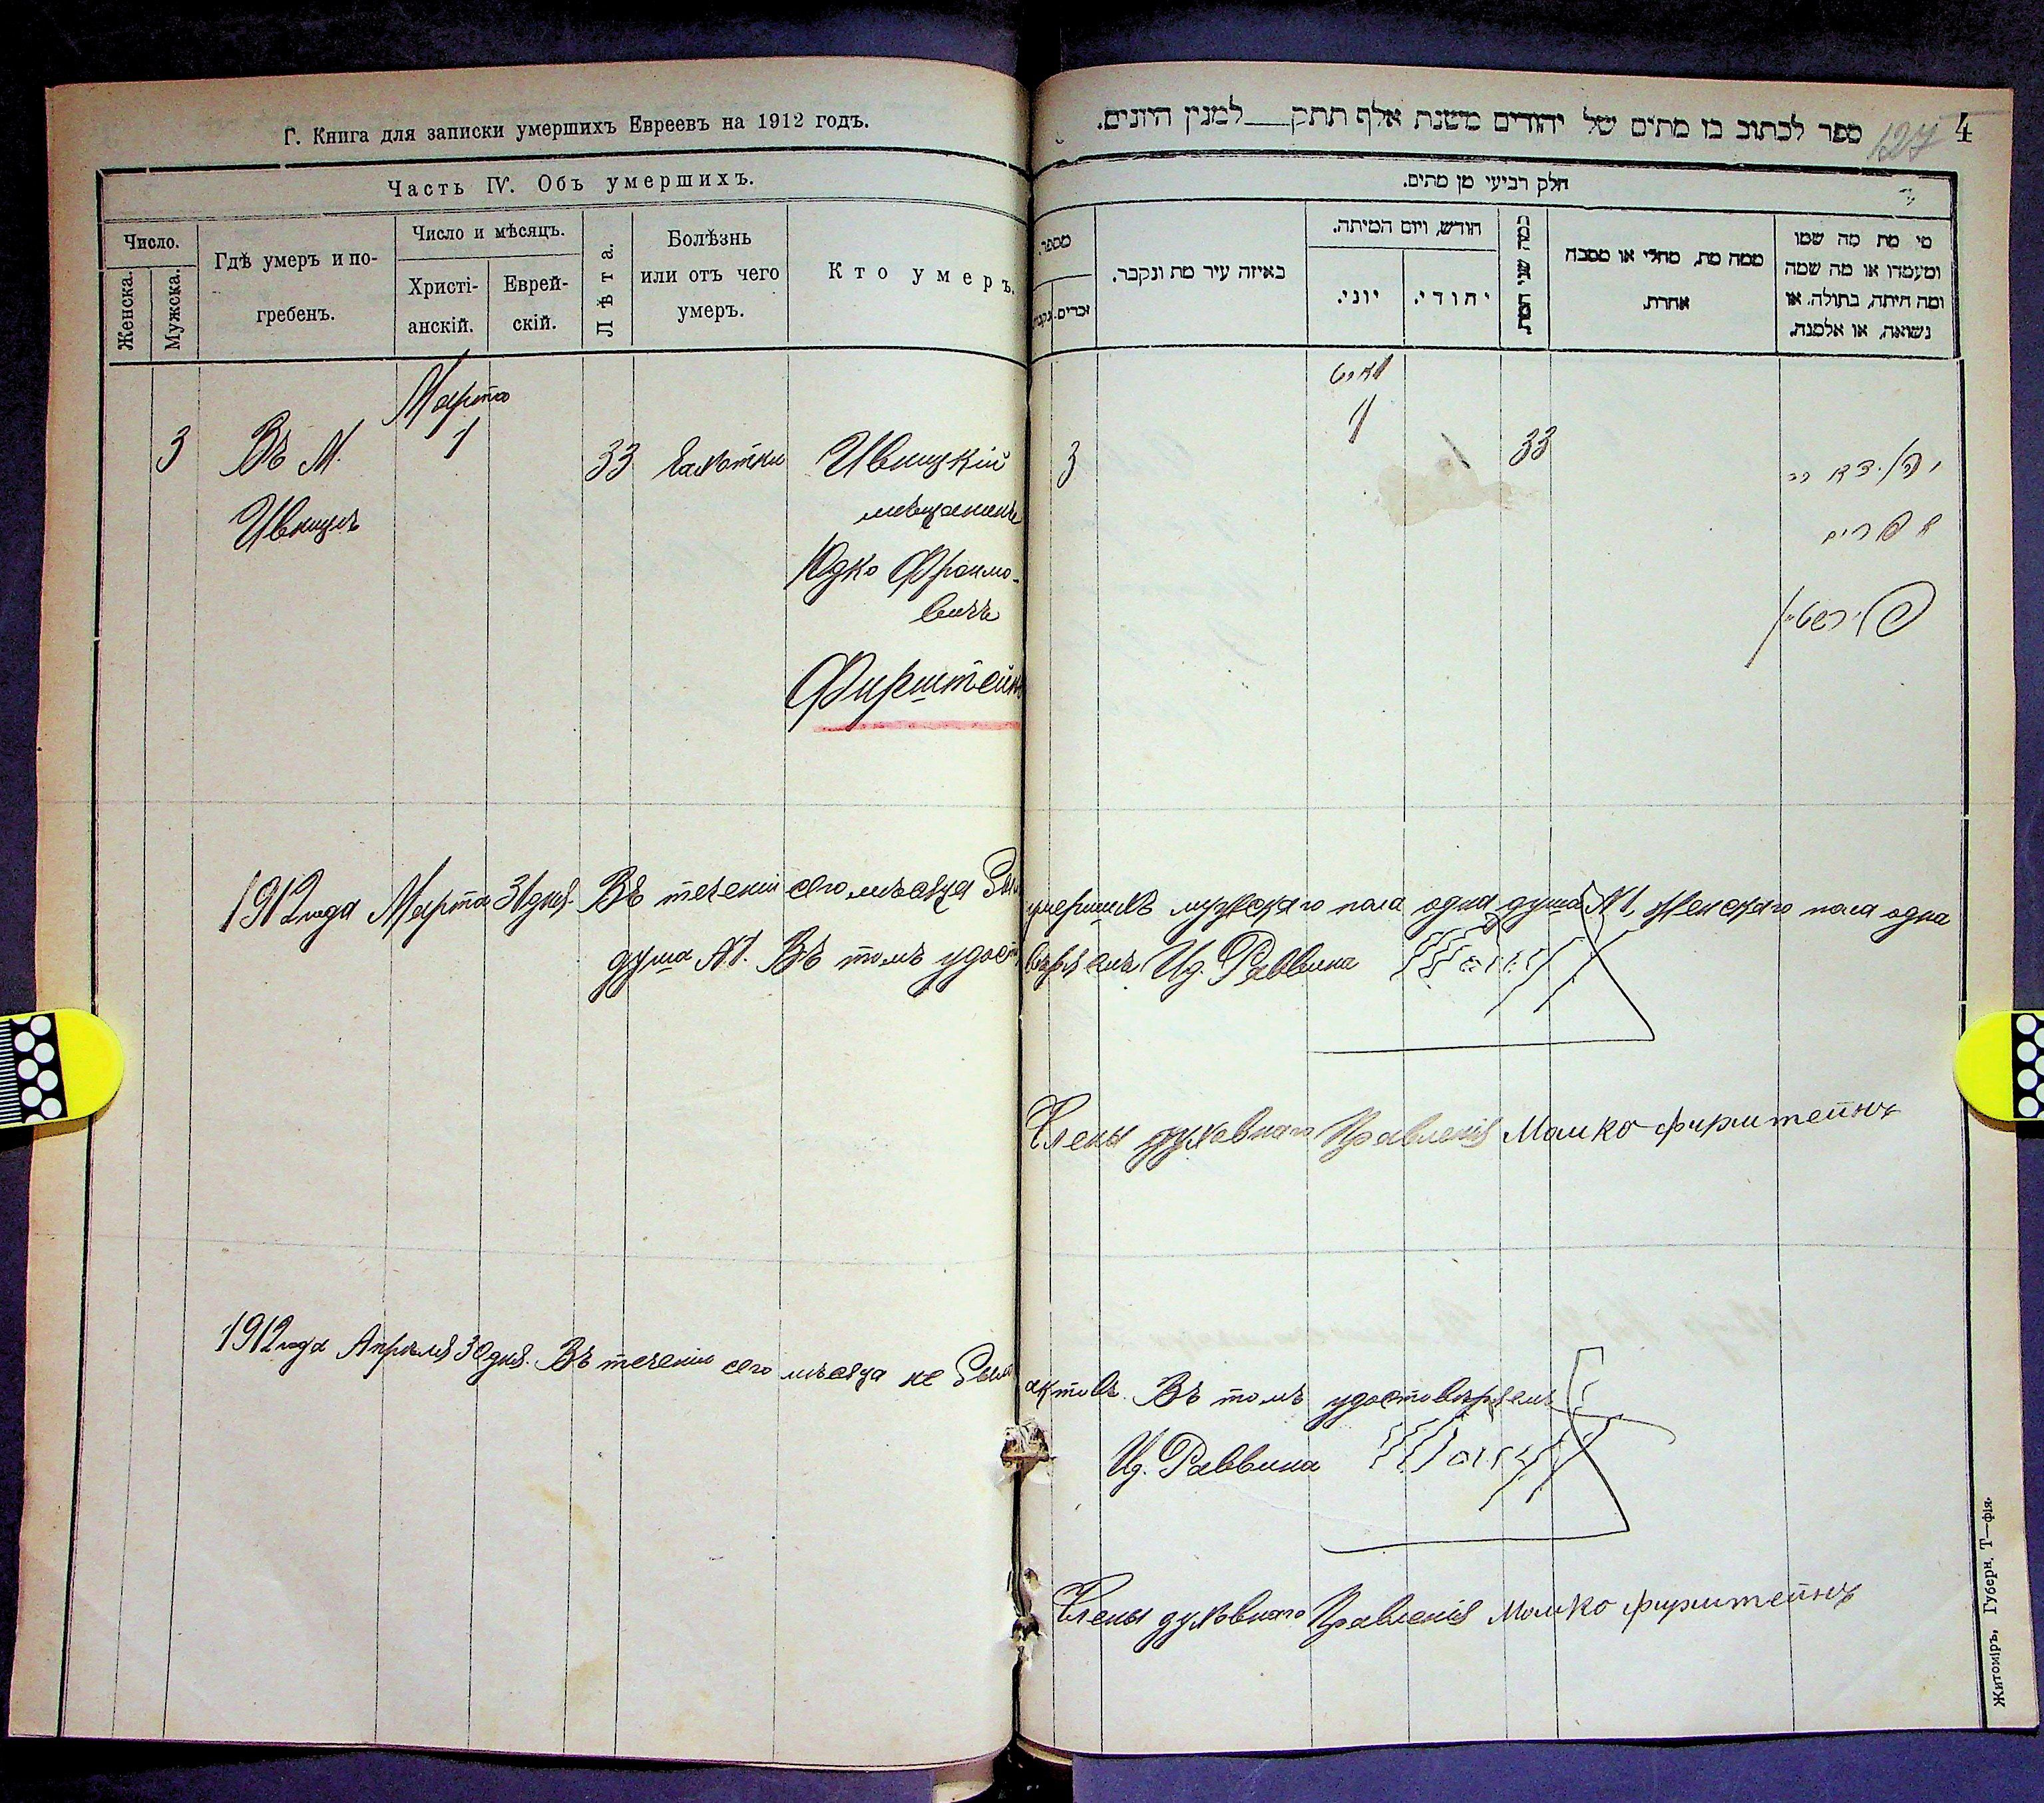 Г. Книга для записки умершихъ Евреевъ на 1912 годъ.
Часть IV. Объ умершихъ.
Число.
Женска.
Мужска.
Гдѣ умеръ и по-
гребенъ.
Число и мѣсяцъ.
Христі-
анскій.
Еврей-
скій.
Лѣта.
Болѣзнь
или отъ чего
умеръ.
Кто умеръ.
Марта
3
Въ М.
1
33
Чахотки
Ивницкій
Ивницѣ
мѣщанинъ
Юдко Фроимо-
вичъ
Фирштейнъ
1912 года Марта 31 дня. Въ теченіи сего мѣсяца было
душа №1. Въ томъ удосто
1912 года Апрѣля 30 дня. Въ теченіи сего мѣсяца не было
ספר לכתוב בו מתים של יהודים משנת אלף תתק__למנין היונים.
127
4
חלק רביעי מן מתים.
מספר.
זכרים.
נקבות
באיזה עיר מת ונקבר.
חודש, ויום המיתה.
יוני.
יהודי.
כמה שני המת.
ממה מת, מחלי או מסבה
אחרת.
מי מת מה שמו
ומעמדו או מה שמה
ומה היתה, בתולה, או
נשואה, או אלמנה.
מארט
3
1
33
אפרים
פירשטיין
умершихъ мужскаго пола одна душа №1, женскаго пола одна
вѣряемъ Ид. Раввина
Члены духовнаго Правленія Мошко фирштейнъ
актовъ. Въ томъ удостовѣряемъ
Ид. Раввина
Члены духовнаго Правленія Мошко фирштейнъ
Житоміръ, Губерн. Т—фія.